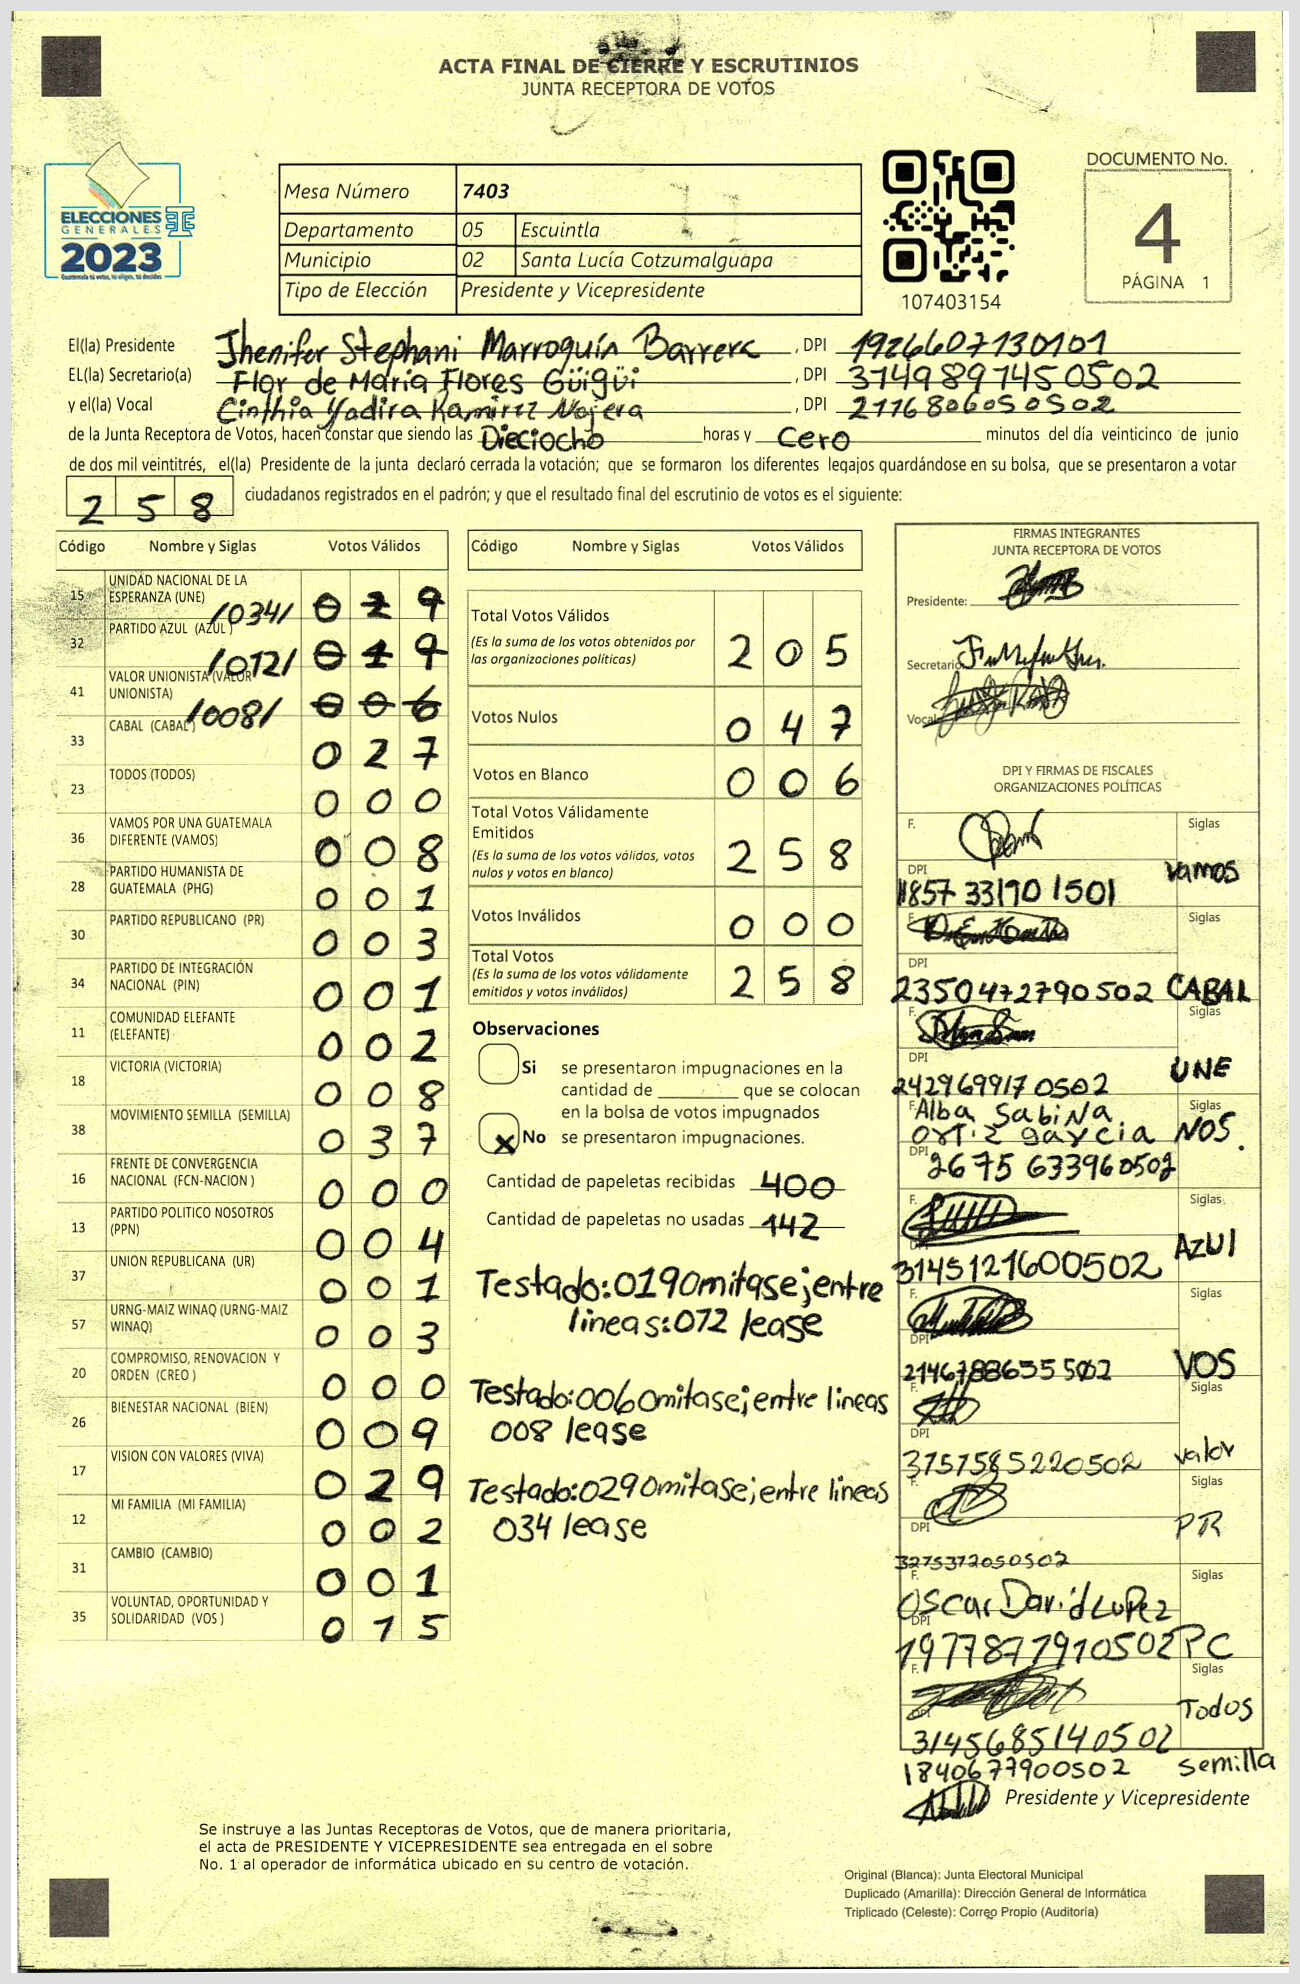 ACTA FINAL DE CIERRE Y ESCRUTINIOS
JUNTA RECEPTORA DE VOTOS
ELECCIONES
GENERALES
2023
Guatemala tú votas, tú eliges, tú decides
Mesa Número 7403
Departamento 05 Escuintla
Municipio 02 Santa Lucía Cotzumalguapa
Tipo de Elección Presidente y Vicepresidente
107403154
DOCUMENTO No.
4
PÁGINA 1
El(la) Presidente Jhenifer Stephani Marroquín Barrera , DPI 1926607130101
EL(la) Secretario(a) Flor de María Flores Güigüi , DPI 3149897450502
y el(la) Vocal Cinthia Yadira Ramirez Najera , DPI 2116806050502
de la Junta Receptora de Votos, hacen constar que siendo las Dieciocho horas y Cero minutos del día veinticinco de junio
de dos mil veintitrés, el(la) Presidente de la junta declaró cerrada la votación; que se formaron los diferentes legajos guardándose en su bolsa, que se presentaron a votar
258 ciudadanos registrados en el padrón; y que el resultado final del escrutinio de votos es el siguiente:
Código Nombre y Siglas Votos Válidos
15 UNIDAD NACIONAL DE LA ESPERANZA (UNE) /034/ 029
32 PARTIDO AZUL (AZUL) /072/ 019
41 VALOR UNIONISTA (VALOR UNIONISTA) /008/ 006
33 CABAL (CABAL) 027
23 TODOS (TODOS) 000
36 VAMOS POR UNA GUATEMALA DIFERENTE (VAMOS) 008
28 PARTIDO HUMANISTA DE GUATEMALA (PHG) 001
30 PARTIDO REPUBLICANO (PR) 003
34 PARTIDO DE INTEGRACIÓN NACIONAL (PIN) 001
11 COMUNIDAD ELEFANTE (ELEFANTE) 002
18 VICTORIA (VICTORIA) 008
38 MOVIMIENTO SEMILLA (SEMILLA) 037
16 FRENTE DE CONVERGENCIA NACIONAL (FCN-NACION ) 000
13 PARTIDO POLITICO NOSOTROS (PPN) 004
37 UNION REPUBLICANA (UR) 001
57 URNG-MAIZ WINAQ (URNG-MAIZ WINAQ) 003
20 COMPROMISO, RENOVACION Y ORDEN (CREO ) 000
26 BIENESTAR NACIONAL (BIEN) 009
17 VISION CON VALORES (VIVA) 029
12 MI FAMILIA (MI FAMILIA) 002
31 CAMBIO (CAMBIO) 001
35 VOLUNTAD, OPORTUNIDAD Y SOLIDARIDAD (VOS ) 015
Código Nombre y Siglas Votos Válidos
Total Votos Válidos 205
(Es la suma de los votos obtenidos por
las organizaciones políticas)
Votos Nulos 047
Votos en Blanco 006
Total Votos Válidamente
Emitidos 258
(Es la suma de los votos válidos, votos
nulos y votos en blanco)
Votos Inválidos 000
Total Votos 258
(Es la suma de los votos válidamente
emitidos y votos inválidos)
Observaciones
Si se presentaron impugnaciones en la
cantidad de ________ que se colocan
en la bolsa de votos impugnados
x No se presentaron impugnaciones.
Cantidad de papeletas recibidas 400
Cantidad de papeletas no usadas 142
Testado:019Omitase;entre
lineas:072 lease
Testado:006Omitase;entre lineas
008 lease
Testado:029Omitase;entre lineas
034 lease
FIRMAS INTEGRANTES
JUNTA RECEPTORA DE VOTOS
Presidente:
Secretario
Vocal
DPI Y FIRMAS DE FISCALES
ORGANIZACIONES POLÍTICAS
F. Siglas
DPI vamos
1857 33190 1501
F. Siglas
DPI
2350472790502 CABAL
F. Siglas
DPI
2429699170502 UNE
F. Alba Sabina Siglas
Ortiz garcia NOS.
DPI 2675 633960502
F. Siglas
DPI AZUL
3145121600502
F. Siglas
DPI
VOS
F. Siglas
DPI
3757585220502 valor
F. Siglas
DPI PR
3275372050502
F. Siglas
Oscar David Lopez
DPI
1977877910502 PC
F. Siglas
DPI Todos
3145685140502
1840677900502 semilla
Presidente y Vicepresidente
Se instruye a las Juntas Receptoras de Votos, que de manera prioritaria,
el acta de PRESIDENTE Y VICEPRESIDENTE sea entregada en el sobre
No. 1 al operador de informática ubicado en su centro de votación.
Original (Blanca): Junta Electoral Municipal
Duplicado (Amarilla): Dirección General de Informática
Triplicado (Celeste): Correo Propio (Auditoría)